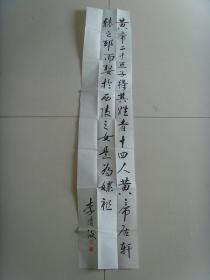 黄帝二十五子得其姓者十四人黄帝居轩
辕之邱而娶於西陵之女是为嫘祖
李